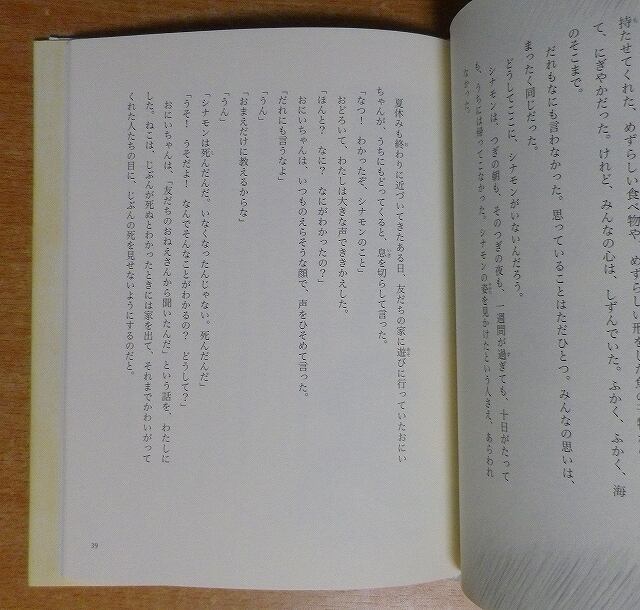 持たせてくれた、めずらしい食べ物や、めずらしい形を
て、にぎやかだった。けれど、みんなの心は、しずんでいた。ふかく、ふかく、海
のそこまで。
だれもなにも言わなかった。思っていることはただひとつ。みんなの思いは、
まったく同じだった。
どうしてここに、シナモンがいないんだろう。
シナモンは、つぎの朝も、そのつぎの夜も、一週間が過ぎても、十日がたって
も、うちには帰ってこなかった。シナモンの姿を見かけたという人さえ、あらわれ
なかった。
夏休みも終わりに近づいてきたある日、友だちの家に遊びに行っていたおにい
ちゃんが、うちにもどってくると、息を切らして言った。
「なつ！　わかったぞ、シナモンのこと」
おどろいて、わたしは大きな声でききかえした。
「ほんと？　なに？　なにがわかったの？」
おにいちゃんは、いつものえらそうな顔で、声をひそめて言った。
「だれにも言うなよ」
「うん」
「おまえだけに教えるからな」
「うん」
「シナモンは死んだんだ。いなくなったんじゃない。死んだんだ」
「うそ！　うそだよ！　なんでそんなことがわかるの？　どうして？」
おにいちゃんは、「友だちのおねえさんから聞いたんだ」という話を、わたしに
した。ねこは、じぶんが死ぬとわかったときには家を出て、それまでかわいがって
くれた人たちの目に、じぶんの死を見せないようにするのだと。
39